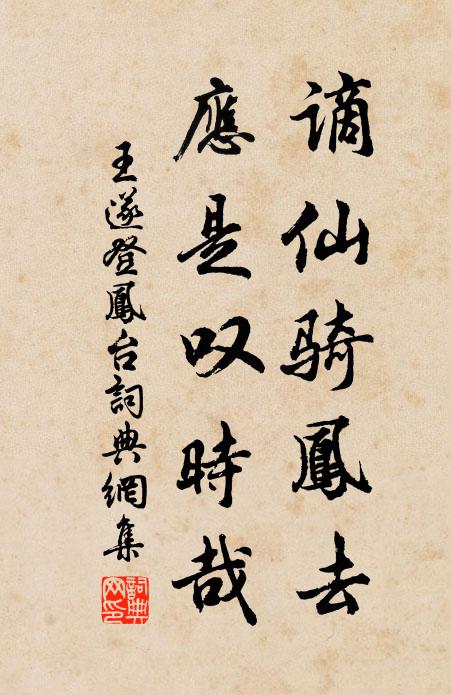 謫仙騎鳳去
應是叹時哉
王遂登鳳台詞典網集
詞典網印